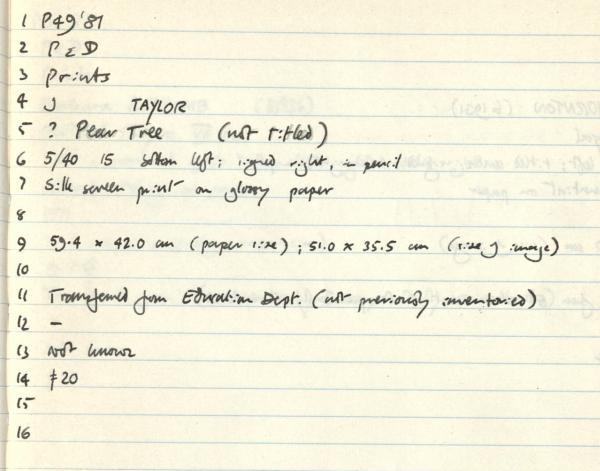 1 P49'81
2 P & D
3 Prints
4 J TAYLOR
5 ? Pear Tree (not titled)
6 5/40 15 bottom left; signed right, in pencil
7 Silk screen print on glossy paper
8
9 59.4 x 42.0 cm (paper size); 51.0 x 35.5 cm (size of image)
10
11 Transferred from Education Dept. (not previously inventoried)
12 —
13 Not known
14 £20
15
16